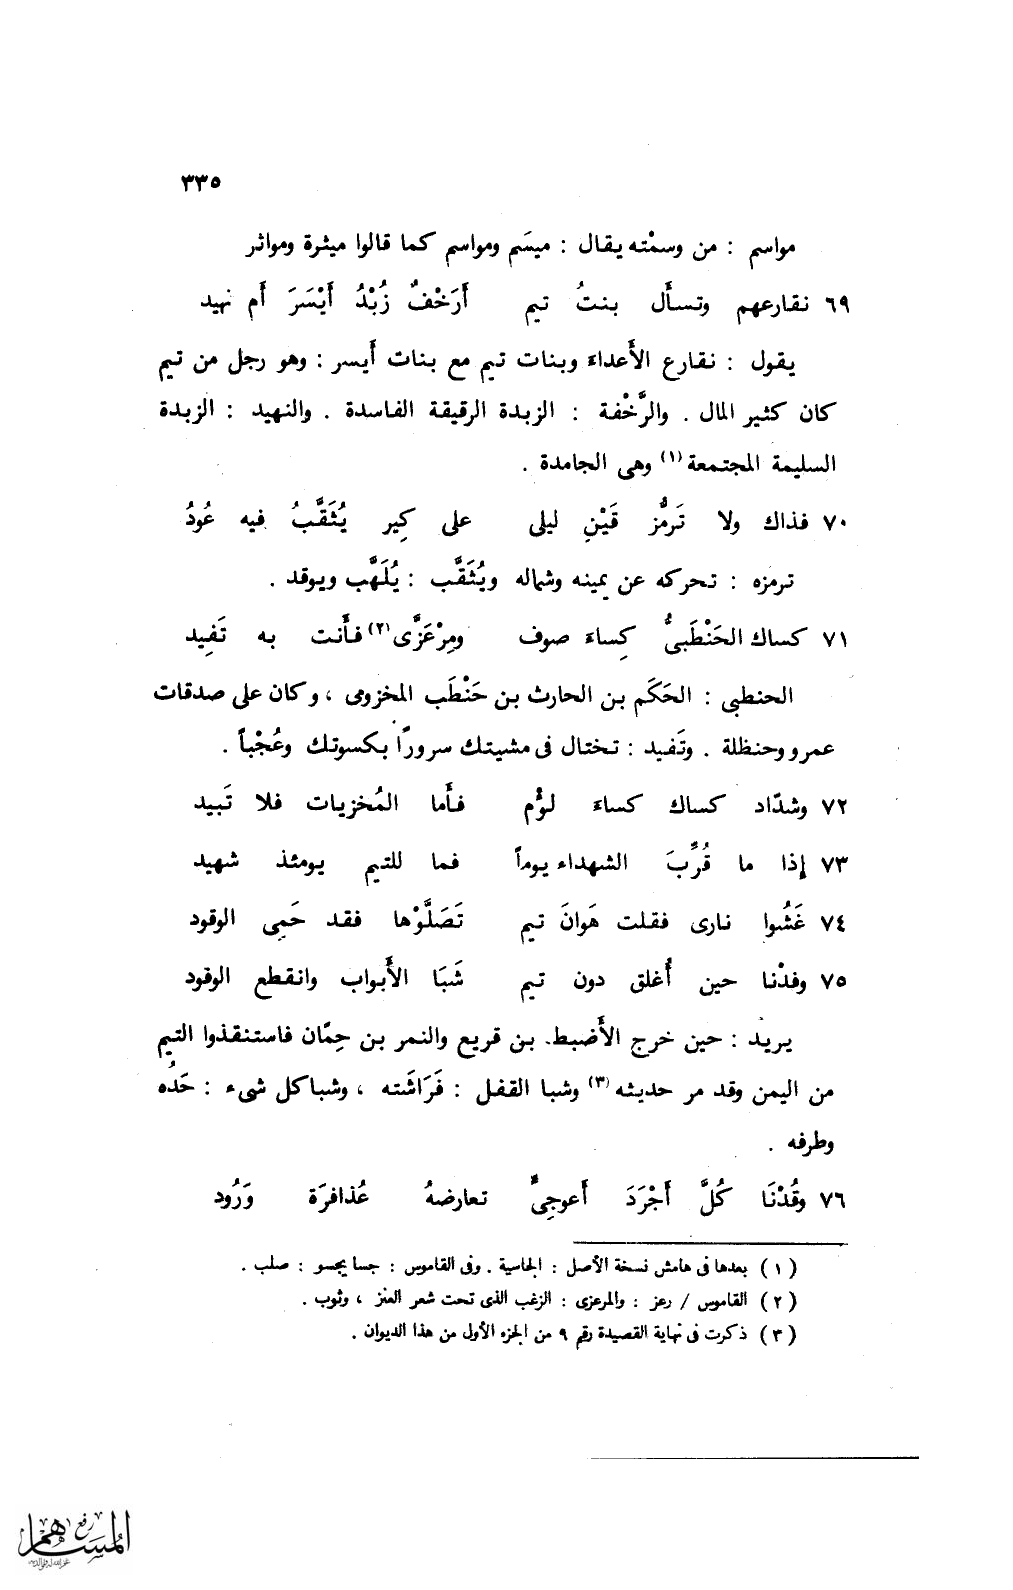 ٣٣٥
مواسم : من وسمْته يقال : ميسَم ومواسم كما قالوا ميثرة ومواثر
٦٩ نقارعهم وتسأَل بنتُ تيم أَرَخْفٌ زُبْدُ أَيْسَرَ أَم نهيد
يقول : نقارع الأَعداء وبنات تيم مع بنات أَيسر : وهو رجل من تيم
كان كثير المال . والرَّخْفة : الزبدة الرقيقة الفاسدة . والنهيد : الزبدة
السليمة المجتمعة (١) وهى الجامدة .
٧٠ فذاك ولا تَرمُّز قَيْنِ ليلى على كِير يُثَقَّبُ فيه عُودُ
ترمزه : تحركه عن يمينه وشماله ويُثَقَّب : يُلَهَّب ويوقد .
٧١ كساك الحَنْطَبىُّ كِساءَ صوف ومِرْعَزَّى (٢) فأَنت به تَفِيد
الحنطبى : الحَكَم بن الحارث بن حَنْطَب المخزومى ، وكان على صدقات
عمرو وحنظلة . وتَفيد : تختال فى مشيتك سرورًا بكسوتك وعُجْباً .
٧٢ وشدّاد كساك كساءَ لؤْم فأَما المُخزيات فلا تَبيد
٧٣ إذا ما قُرِّبَ الشهداء يوماً فما للتيم يومئذ شهيد
٧٤ غَشُوا نارى فقلت هَوانَ تيم تَصَلَّوْها فقد حَمِى الوقود
٧٥ وفدْنا حين أُغلق دون تيم شَبَا الأَبواب وانقطع الوفود
يريد : حين خرج الأَضبط بن قريع والنمر بن حِمّان فاستنقذوا التيم
من اليمن وقد مر حديثه (٣) وشبا القفل : فَرَاشَته ، وشبا كل شىء : حَدُّه
وطرفه .
٧٦ وقُدْنَا كُلَّ أَجْرَدَ أَعوجِىٍّ تعارضهُ عُذافرَة وَرُود
(١) بعدها فى هامش نسخة الأصل : الجاسية . وفى القاموس : جسا يجسو : صلب .
(٢) القاموس / رعز : والمرعزى : الزغب الذى تحت شعر العنز ، وثوب .
(٣) ذكرت فى نهاية القصيدة رقم ٩ من الجزء الأول من هذا الديوان .
رفع
المساهم